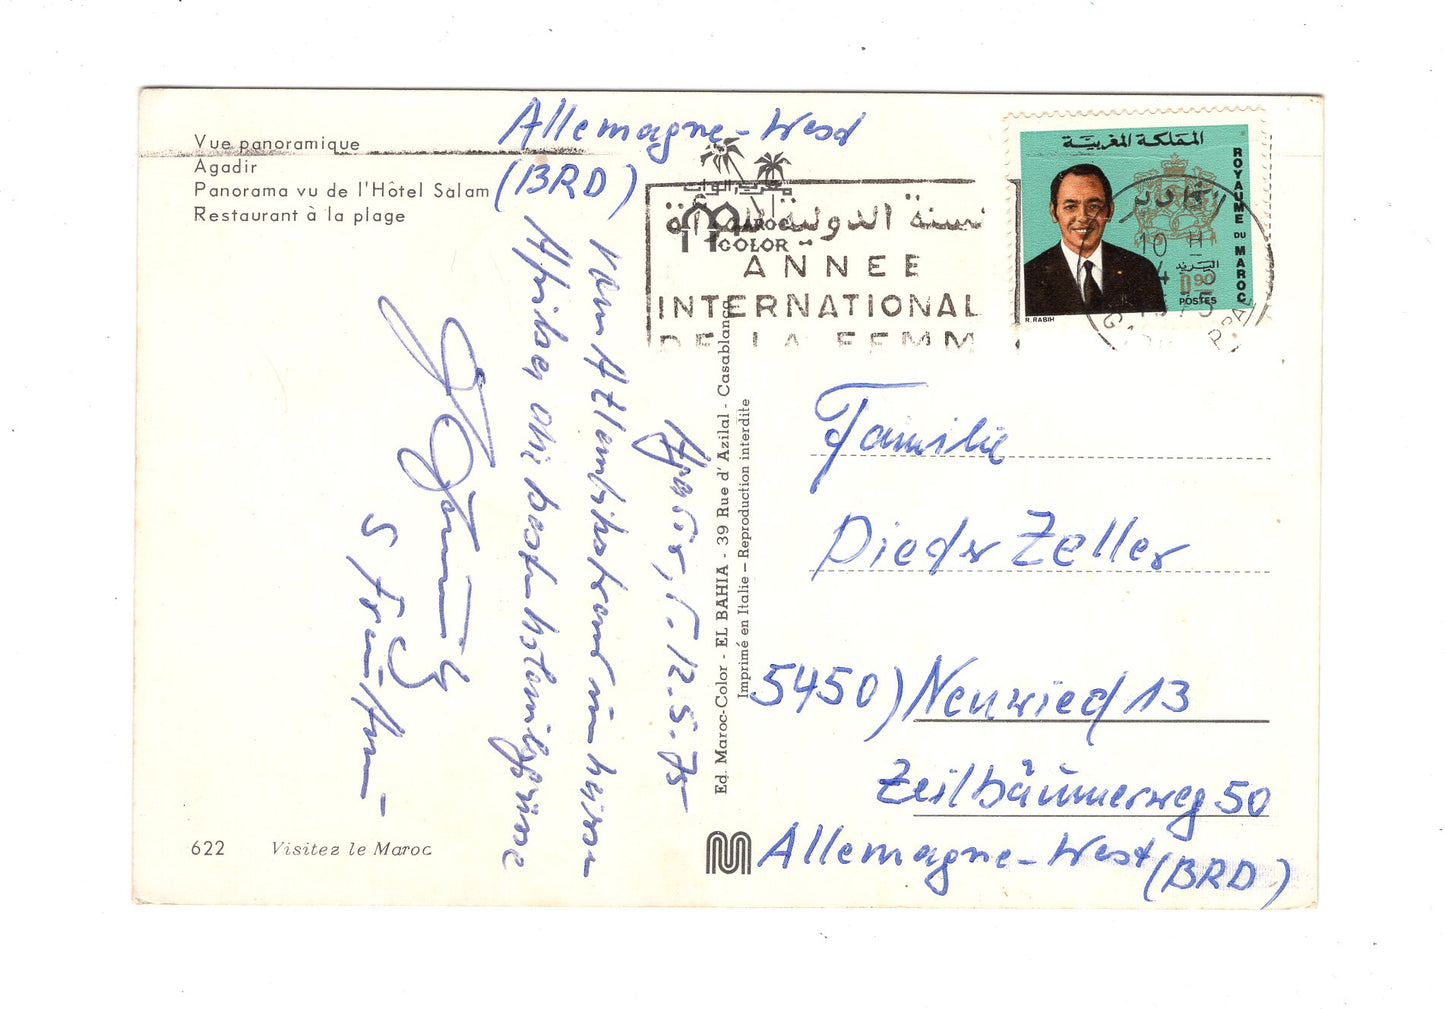 Vue panoramique
Agadir
Panorama vu de l'Hôtel Salam
Restaurant à la plage
Allemagne-West
(BRD)
المملكة المغربية
ROYAUME DU MAROC
البريد
0.90
POSTES
R. RABIH
السنة الدولية للمرأة
MAROC
COLOR
ANNEE
INTERNATIONAL
DE LA FEMM
10 H
Agadir, 12.5.75
vom Atlantikstrand im heissen
Afrika die besten Urlaubsgrüsse
Ed. Maroc-Color - EL BAHIA - 39 Rue d'Azilal - Casablanca
Imprimé en Italie - Reproduction interdite
Familie
Dieter Zeller
5450) Neuwied 13
Zeilbäumerweg 50
Allemagne-West
(BRD)
622 Visitez le Maroc